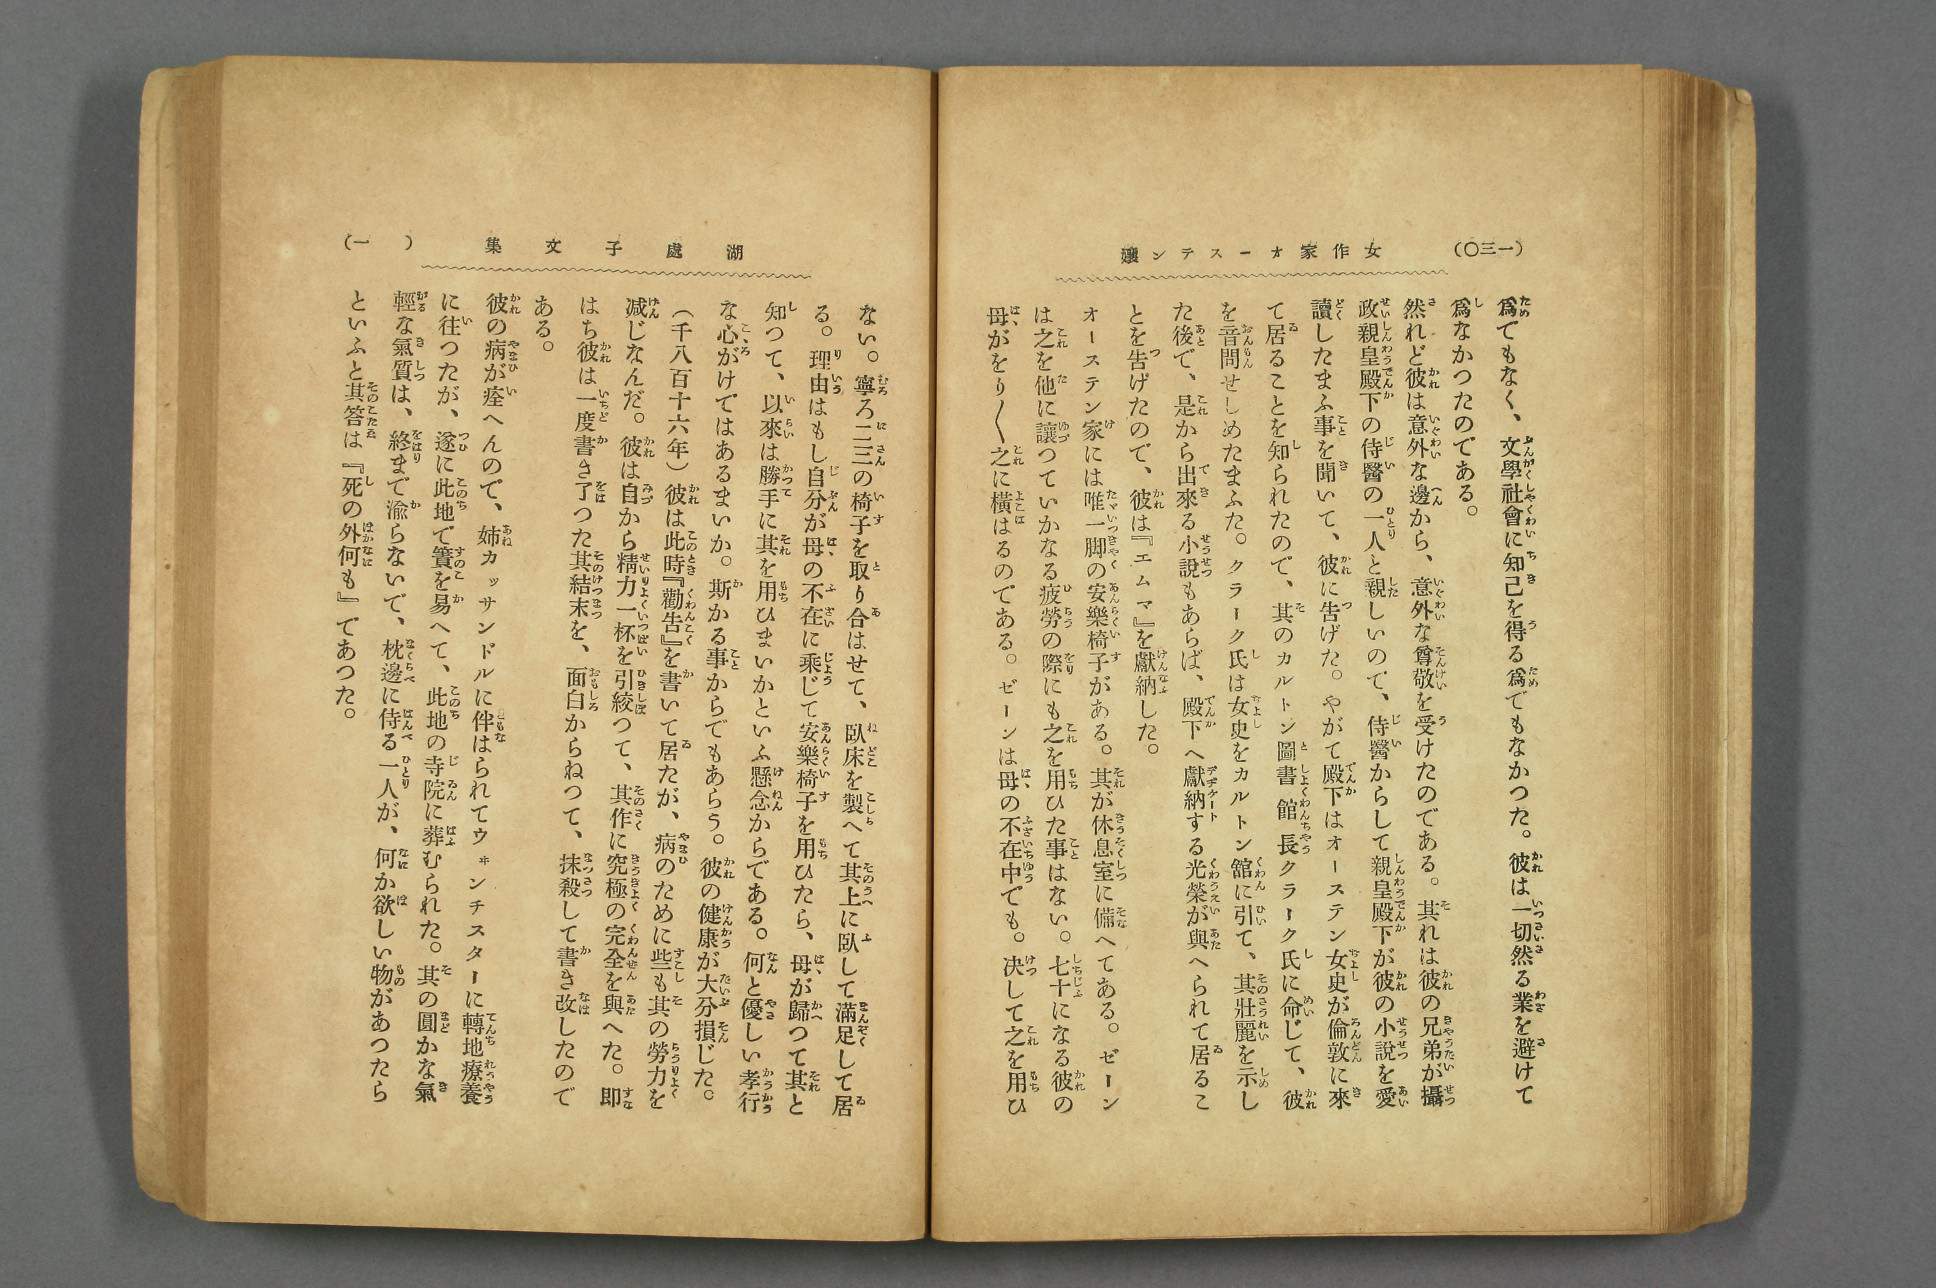 (一三〇)
女作家オーステン孃
爲でもなく、文學社會に知己を得る爲でもなかつた。彼は一切然る業を避けて
爲なかつたのである。
然れど彼は意外な邊から、意外な尊敬を受けたのである。其れは彼の兄弟が攝
政親皇殿下の侍醫の一人と親しいので、侍醫からして親皇殿下が彼の小說を愛
讀したまふ事を聞いて、彼に告げた。やがて殿下はオーステン女史が倫敦に來
て居ることを知られたので、其のカルトン圖書館長クラーク氏に命じて、彼
を音問せしめたまふた。クラーク氏は女史をカルトン館に引いて、其壯麗を示し
た後で、是から出來る小說もあらば、殿下へ獻納する光榮が與へられて居るこ
とを告げたので、彼は『エムマ』を獻納した。
オーステン家には唯一脚の安樂椅子がある。其が休息室に備へてある。ゼーン
は之を他に讓つていかなる疲勞の際にも之を用ひた事はない。七十になる彼の
母がをり〱之に橫はるのである。ゼーンは母の不在中でも。決して之を用ひ
湖處子文集
(一 )
ない。寧ろ二三の椅子を取り合はせて、臥床を製へて其上に臥して滿足して居
る。理由はもし自分が母の不在に乘じて安樂椅子を用ひたら、母が歸つて其と
知つて、以來は勝手に其を用ひまいかといふ懸念からである。何と優しい孝行
な心がけではあるまいか。斯かる事からでもあらう。彼の健康が大分損じた。
(千八百十六年)彼は此時『勸告』を書いて居たが、病のために些も其の勞力を
减じなんだ。彼は自から精力一杯を引絞つて、其作に究極の完全を與へた。即
はち彼は一度書き了つた其結末を、面白からねつて、抹殺して書き改したので
ある。
彼の病が痊へんので、姉カッサンドルに伴はられてウヰンチスターに轉地療養
に往つたが、遂に此地で簀を易へて、此地の寺院に葬むられた。其の圓かな氣
輕な氣質は、終まで渝らないで、枕邊に侍る一人が、何か欲しい物があつたら
といふと其答は『死の外何も』であつた。